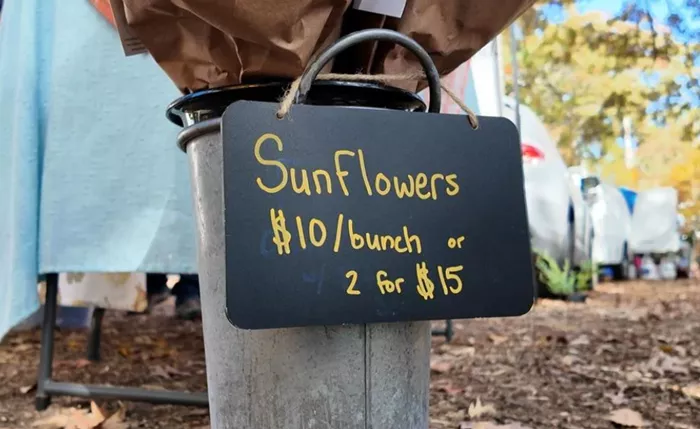 Sunflowers
$10/bunch or
2 for $15